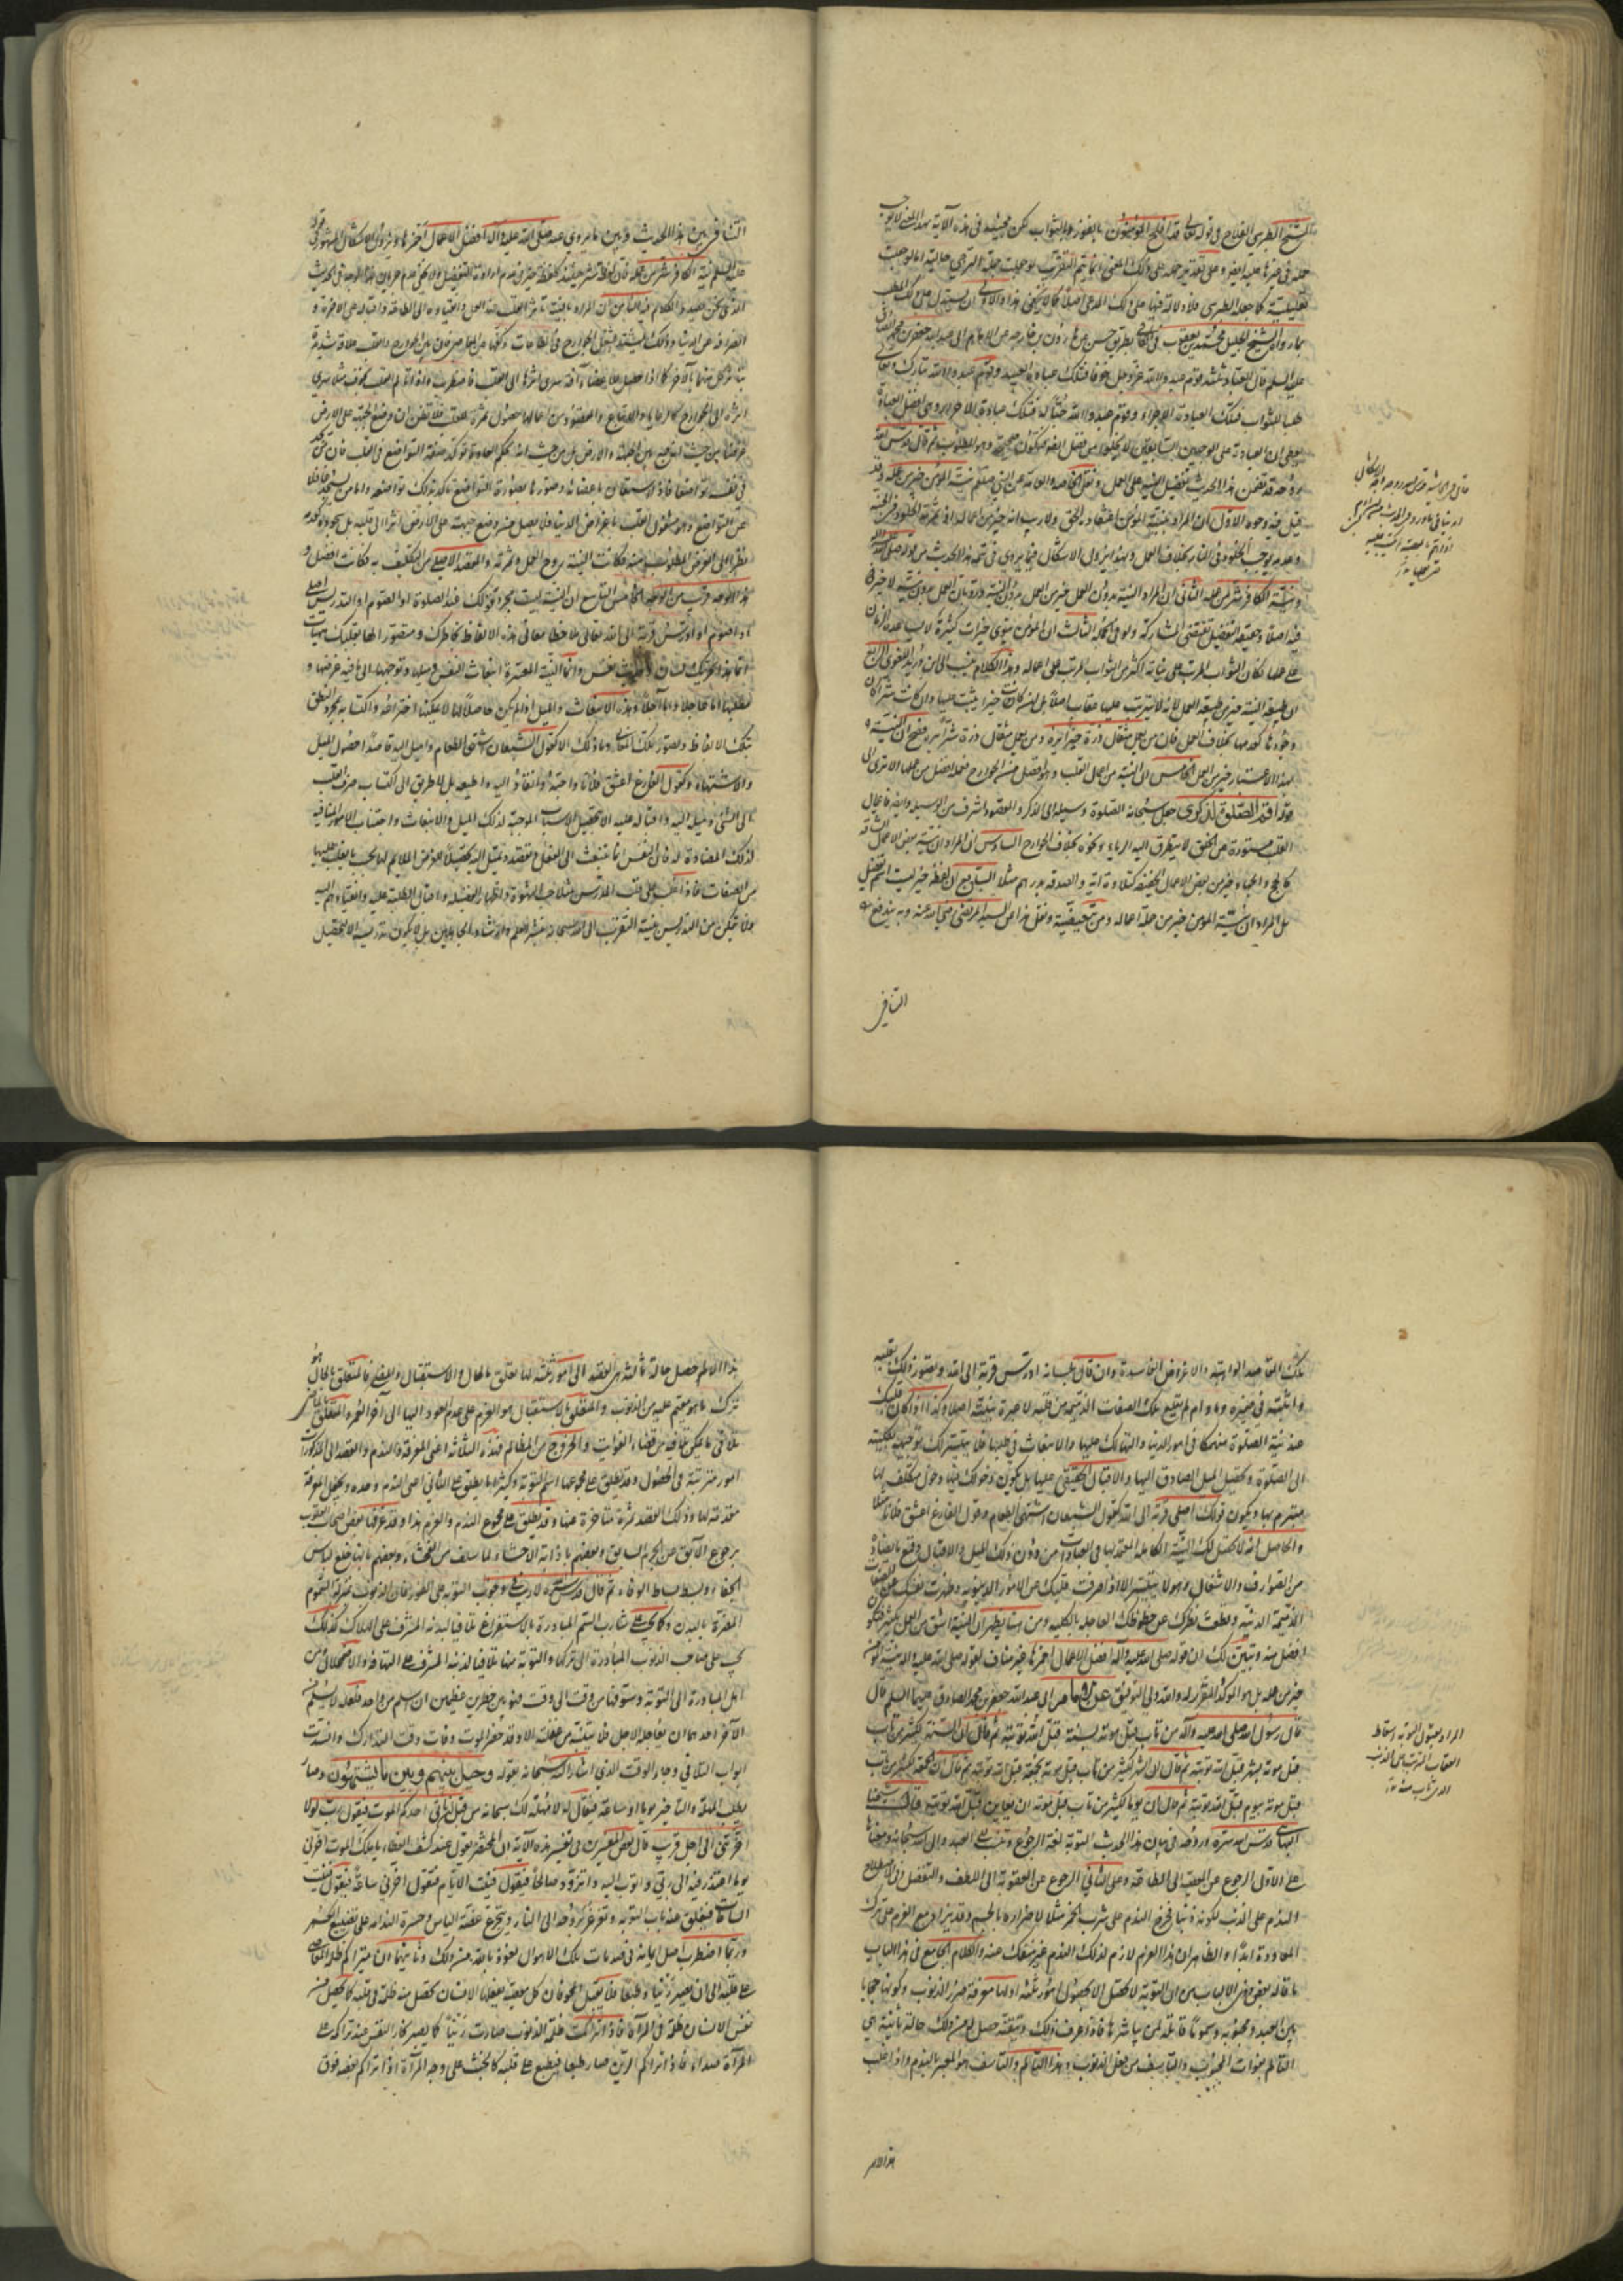 الشيخ الطبرسي الفلاح في قوله تعالى قد افلح المؤمنون بالفوز بالثواب لكن مجيئه في هذه الآية بهذا المعنى لا يوجب
حمله في غيرها عليه ايضا وعلى تقدير حمله على ذلك المعنى انما يتم التقريب لو جعلت جملة الترجي حالية اما لو جعلت
تعليلية كما جعله الطبرسي فلا دلالة فيها على ذلك المدعى اصلا كما لا يخفى هذا والاولى ان يستدل على ذلك المطلب
بما رواه الشيخ الجليل محمد بن يعقوب في الكافي بطريق حسن عن هارون بن خارجه عن الامام ابي عبد الله جعفر بن محمد الصادق
عليه السلم قال العباد ثلثة قوم عبدوا الله عز وجل خوفا فتلك عبادة العبيد وقوم عبدوا الله تبارك وتعالى
طلب الثواب فتلك عبادة الاجراء وقوم عبدوا الله حبا له فتلك عبادة الاحرار وهي افضل العبادة
يعطي ان العبادة على الوجهين السابقين لا تخلو من فضل ايضا فتكون صحيحة وهو المطلوب ثم قال قدس الله
روحه قد تضمن هذا الحديث تفضيل النية على العمل ونقل الخاصه والعامة عن النبي صلعم نية المؤمن خير من عمله وقد
قيل فيه وجوه الاول ان المراد بنية المؤمن اعتقاده الحق ولا ريب انه خير من اعماله اذ ثمرته الخلود في الجنة
وعدمه يوجب الخلود في النار بخلاف العمل وبهذا يزول الاشكال فيما يروى في تتمة هذا الحديث من قوله صلى الله عليه وآله
ونية الكافر شر من عمله الثاني ان المراد النية بدون العمل خير من العمل بدون النية ورد بان العمل بدون نية لا خير
فيه اصلا وحقيقة التفضيل تقتضي المشاركة ولو في الجملة الثالث ان المؤمن ينوي خيرات كثيرة لا يساعده الزمان
على عملها فكان الثواب المترتب على نياته اكثر من الثواب المترتب على اعماله وهذا الكلام ينسب الى ابن دريد اللغوي الرابع
ان طبيعة النية خير من طبيعة العمل لانه لا يترتب عليها عقاب اصلا بل ان كانت خيرا اثيب عليها وان كانت شرا كان
وجودها كعدمها بخلاف العمل فان من يعمل مثقال ذرة خيرا يره ومن يعمل مثقال ذرة شرا يره فصح ان النية
بهذا الاعتبار خير من العمل الخامس ان النية من اعمال القلب وهو افضل من الجوارح فعمله افضل من عملها الا ترى الى
قوله اقم الصلوة لذكري جعل سبحانه الصلوة وسيلة الى الذكر والمقصود اشرف من الوسيلة وايضا فاعمال
القلب مستورة عن الخلق لا يتطرق اليه الرياء ونحوه بخلاف الجوارح السادس ان المراد ان نية بعض الاعمال الشاقة
كالحج والجهاد خير من بعض الاعمال الخفيفة كتلاوة آية والصدقة بدرهم مثلا السابع ان لفظة خير ليست اسم تفضيل
بل المراد ان نية المؤمن خير من جملة اعماله ومن تبعيضية ونقل هذا عن السيد المرتضى رضي الله عنه وبه يندفع
التنافي
التنافي بين هذا الحديث وبين ما يروى عنه صلى الله عليه وآله افضل الاعمال احمزها ويزول الاشكال المشهور في قوله
عليه السلم نية الكافر شر من عمله
الذي نحن بصدد الكلام فيه الثامن ان المراد بالنية تأثر القلب عند العمل وانقياده الى الطاعة واقباله على الاخرة و
انصرافه عن الدنيا وذلك يشتد بشغل الجوارح في الطاعات وكفها عن المعاصي فان بين الجوارح والقلب علاقة شديدة
يتاثر كل منهما بالآخر كما اذا حصل للاعضاء آفة سرى اثرها الى القلب فاضطرب واذا تألم القلب بخوف مثلا سرى
اثره الى الجوارح فارتعدت
غرضا من حيث انه جمع بين الجبهة والارض بل من حيث انه بحكم العادة يؤكد صفة التواضع في القلب فان من يجد
في نفسه تواضعا فاذا استعان باعضائه وصورها بصورة التواضع تأكد بذلك تواضعه واما من يسجد غافلا
عن التواضع وهو مشغول القلب باغراض الدنيا فلا يصل من وضع جبهته على الارض اثر الى قلبه بل سجوده كعدمه
نظرا الى الغرض المطلوب منه فكانت النية روح العمل وثمرته والمقصد الاصلي من التكليف به فكانت افضل و
هذا الوجه قريب من الوجه الخامس التاسع ان النية ليست مجرد قولك عند الصلوة او الصوم او التدريس اصلي
او اصوم او ادرس قربة الى الله تعالى ملاحظا معاني هذه الالفاظ بخاطرك ومتصورا لها بقلبك هيهات
انما هذا تحريك لسان وحديث نفس وانما النية المعتبرة انبعاث النفس وميلها وتوجهها الى ما فيه غرضها و
مطلبها اما عاجلا واما آجلا وهذا الانبعاث والميل اذا لم يكن حاصلا لها لا يمكنها اختراعه واكتسابه بمجرد النطق
بتلك الالفاظ وتصور تلك المعاني وما ذلك الا كقول الشبعان اشتهي الطعام واميل اليه قاصدا حصول الميل
والاشتهاء وكقول الفارغ اعشق فلانا واحبه وانقاد اليه واطيعه بل لا طريق الى اكتساب صرف القلب
الى الشئ وميله اليه واقباله عليه الا بتحصيل الاسباب الموجبة لذلك الميل والانبعاث واجتناب الامور المنافيه
لذلك المضادة له فان النفس انما تنبعث الى الفعل وتقصده وتميل اليه تحصيلا للغرض الملائم لها بحسب ما يغلب عليها
من الصفات فاذا غلب على قلب المدرس مثلا حب الشهرة واظهار الفضيلة واقبال الطلبة عليه وانقيادهم اليه
فلا يتمكن من التدريس بنية التقرب الى الله سبحانه بنشر العلم وارشاد الجاهلين بل لا يكون تدريسه الا لتحصيل
تلك المقاصد الواهية والاغراض الفاسدة وان قال بلسانه ادرس قربة الى الله وتصور ذلك بقلبه
واثبته في ضميره وما دام لم يقلع تلك الصفات الذميمة من قلبه لا عبرة بنيته اصلا وكذا اذا كان قلبك
عند نية الصلوة منهمكا في امور الدنيا والتهالك عليها والانبعاث في طلبها فلا يتيسر لك توجيهه بكليته
الى الصلوة وتحصيل الميل الصادق اليها والاقبال الحقيقي عليها بل يكون دخولك فيها دخول متكلف لها
متبرم بها ويكون قولك اصلي قربة الى الله كقول الشبعان اشتهي الطعام وقول الفارغ اعشق فلانا مثلا
والحاصل انه لا تحصل لك النية الكاملة المعتد بها في العبادات من دون ذلك الميل والاقبال وقمع ما يضاده
من الصوارف والاشغال وهو لا يتيسر الا اذا صرفت قلبك عن الامور الدنيوية وطهرت نفسك عن الصفات
الذميمة الدنية وقطعت نظرك عن حظوظك العاجلة بالكلية ومن هنا يظهر ان النية اشق من العمل بكثير فتكون
افضل منه وتبين لك ان قوله صلى الله عليه وآله افضل الاعمال احمزها غير مناف لقوله صلى الله عليه وآله نية المؤمن
خير من عمله بل هو المؤكد المقرر له والله ولي التوفيق عن ابي عبد الله جعفر بن محمد الصادق عليهما السلم قال
قال رسول الله صلى الله عليه وآله من تاب قبل موته بسنة قبل الله توبته ثم قال ان السنة لكثير من تاب
قبل موته بشهر قبل الله توبته ثم قال ان الشهر لكثير من تاب قبل موته بجمعة قبل الله توبته ثم قال ان الجمعة لكثير من تاب
قبل موته بيوم قبل الله توبته ثم قال ان يوما لكثير من تاب قبل موته ان يعاين قبل الله توبته قال شيخنا
البهائي قدس الله سره وروحه في بيان هذا الحديث التوبة لغة الرجوع وتنسب الى العبد والى الله سبحانه ومعناها
على الاول الرجوع عن المعصية الى الطاعة وعلى الثاني الرجوع عن العقوبة الى اللطف والتفضل وفي الاصطلاح
الندم على الذنب لكونه ذنبا فخرج الندم على شرب الخمر مثلا لاضراره بالجسم وقد يزاد مع العزم على ترك
المعاودة ابدا والظاهر ان هذا العزم لازم لذلك الندم غير منفك عنه والكلام الجامع في هذا الباب
ما قاله بعض ذوي الالباب من ان التوبة لا تحصل الا بحصول امور ثلثة اولها معرفة ضرر الذنوب وكونها حجابا
بين العبد ومحبوبه وسموما قاتلة لمن يباشرها فاذا عرف ذلك وتيقنه حصل له من ذلك حالة ثانية هي
التألم لفوات المحبوب والتأسف من فعل الذنوب وهذا التألم والتأسف هو المعبر عنه بالندم واذا غلب
هذا الالم
هذا الالم حصل حالة ثالثة هي القصد الى امور ثلثة لها تعلق بالحال والاستقبال والمضي فالمتعلق بالحال هو
ترك ما هو مقيم عليه من الذنوب والمتعلق بالاستقبال هو العزم على عدم العود اليها الى آخر العمر والمتعلق بالماضي
تلافي ما يمكن تلافيه من قضاء الفوائت والخروج من المظالم فهذه الثلاثة اعني المعرفة والندم والقصد الى المذكورات
امور مترتبة في الحصول وقد يطلق على مجموعها اسم التوبة وكثيرا ما يطلق على الثاني اعني الندم وحده وتجعل المعرفة
مقدمة لها وذلك القصد ثمرة متأخرة عنها وقد يطلق على مجموع الندم والعزم هذا وقد عرفها بعض اصحاب القلوب
برجوع الآبق عن الجرم السابق وبعضهم باذابة الاحشاء لما سلف من الفحشاء وبعضهم بانها خلع لباس
الجفاء وبسط بساط الوفاء ثم قال قدس سره لا ريب في وجوب التوبة على الفور فان الذنوب بمنزلة السموم
المضرة بالبدن وكما يجب على شارب السم المبادرة الى الاستفراغ تلافيا لبدنه المشرف على الهلاك كذلك
يجب على صاحب الذنوب المبادرة الى تركها والتوبة منها تلافيا لدينه المشرف على التهافت والاضمحلال ومن
اهمل المبادرة الى التوبة وسوفها من وقت الى وقت فهو بين خطرين عظيمين ان سلم من واحد فلعله لا يسلم من
الآخر احدهما ان يعاجله الاجل فلا يتنبه من غفلته الا وقد حضره الموت وفات وقت التدارك وانسدت
ابواب التلافي وجاء الوقت الذي اشار اليه سبحانه بقوله وحيل بينهم وبين ما يشتهون وصار
يطلب المهلة والتأخير يوما او ساعة فيقال له لا مهلة لك سبحانه من قبل ان يأتي احدكم الموت فيقول رب لولا
اخرتني الى اجل قريب قال بعض المفسرين في تفسير هذه الآية ان المحتضر يقول عند كشف الغطاء يا ملك الموت اخرني
يوما اعتذر فيه الى ربي واتوب اليه واتزود صالحا فيقول فنيت الايام فيقول اخرني ساعة فيقول فنيت
الساعات فيغلق عنه باب التوبة ويغرغر بروحه الى النار ويتجرع غصة الياس وحسرة الندامة على تضييع العمر
وربما اضطرب اصل ايمانه في صدمات تلك الاهوال نعوذ بالله من ذلك وثانيهما ان تتراكم ظلمة المعاصي
على قلبه الى ان تصير رينا وطبعا فلا يقبل المحو فان كل معصية يفعلها الانسان تحصل منه ظلمة في قلبه كما تحصل من
نفس الانسان ظلمة في المرآة فاذا تراكمت ظلمة الذنوب صارت رينا كما يصير بخار النفس عند تراكمه على
المرآة صداء فاذا تراكم الرين صار طبعا فيطبع على قلبه كالخبث على وجه المرآة اذا تراكم بعضه فوق
المراد بقبول التوبة اسقاط
العقاب المترتب على الذنب
الذي تاب منه